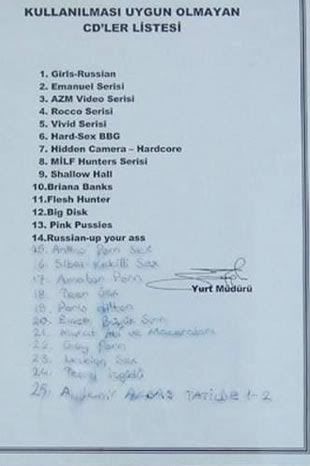 KULLANILMASI UYGUN OLMAYAN
CD'LER LİSTESİ
1. Girls-Russian
2. Emanuel Serisi
3. AZM Video Serisi
4. Rocco Serisi
5. Vivid Serisi
6. Hard-Sex BBG
7. Hidden Camera – Hardcore
8. MİLF Hunters Serisi
9. Shallow Hall
10.Briana Banks
11.Flesh Hunter
12.Big Disk
13. Pink Pussies
14.Russian-up your ass
15. Porn Sex
16. Sibel Kekilli Sex
17. Amatör Porn
18. Teen Sex
19. Paris Hilton
20.
21. ve Maceraları
22. Gay Porn
23. Lezbiyen Sex
24.
25. AKBAŞ TATİLDE 1-2
Yurt Müdürü